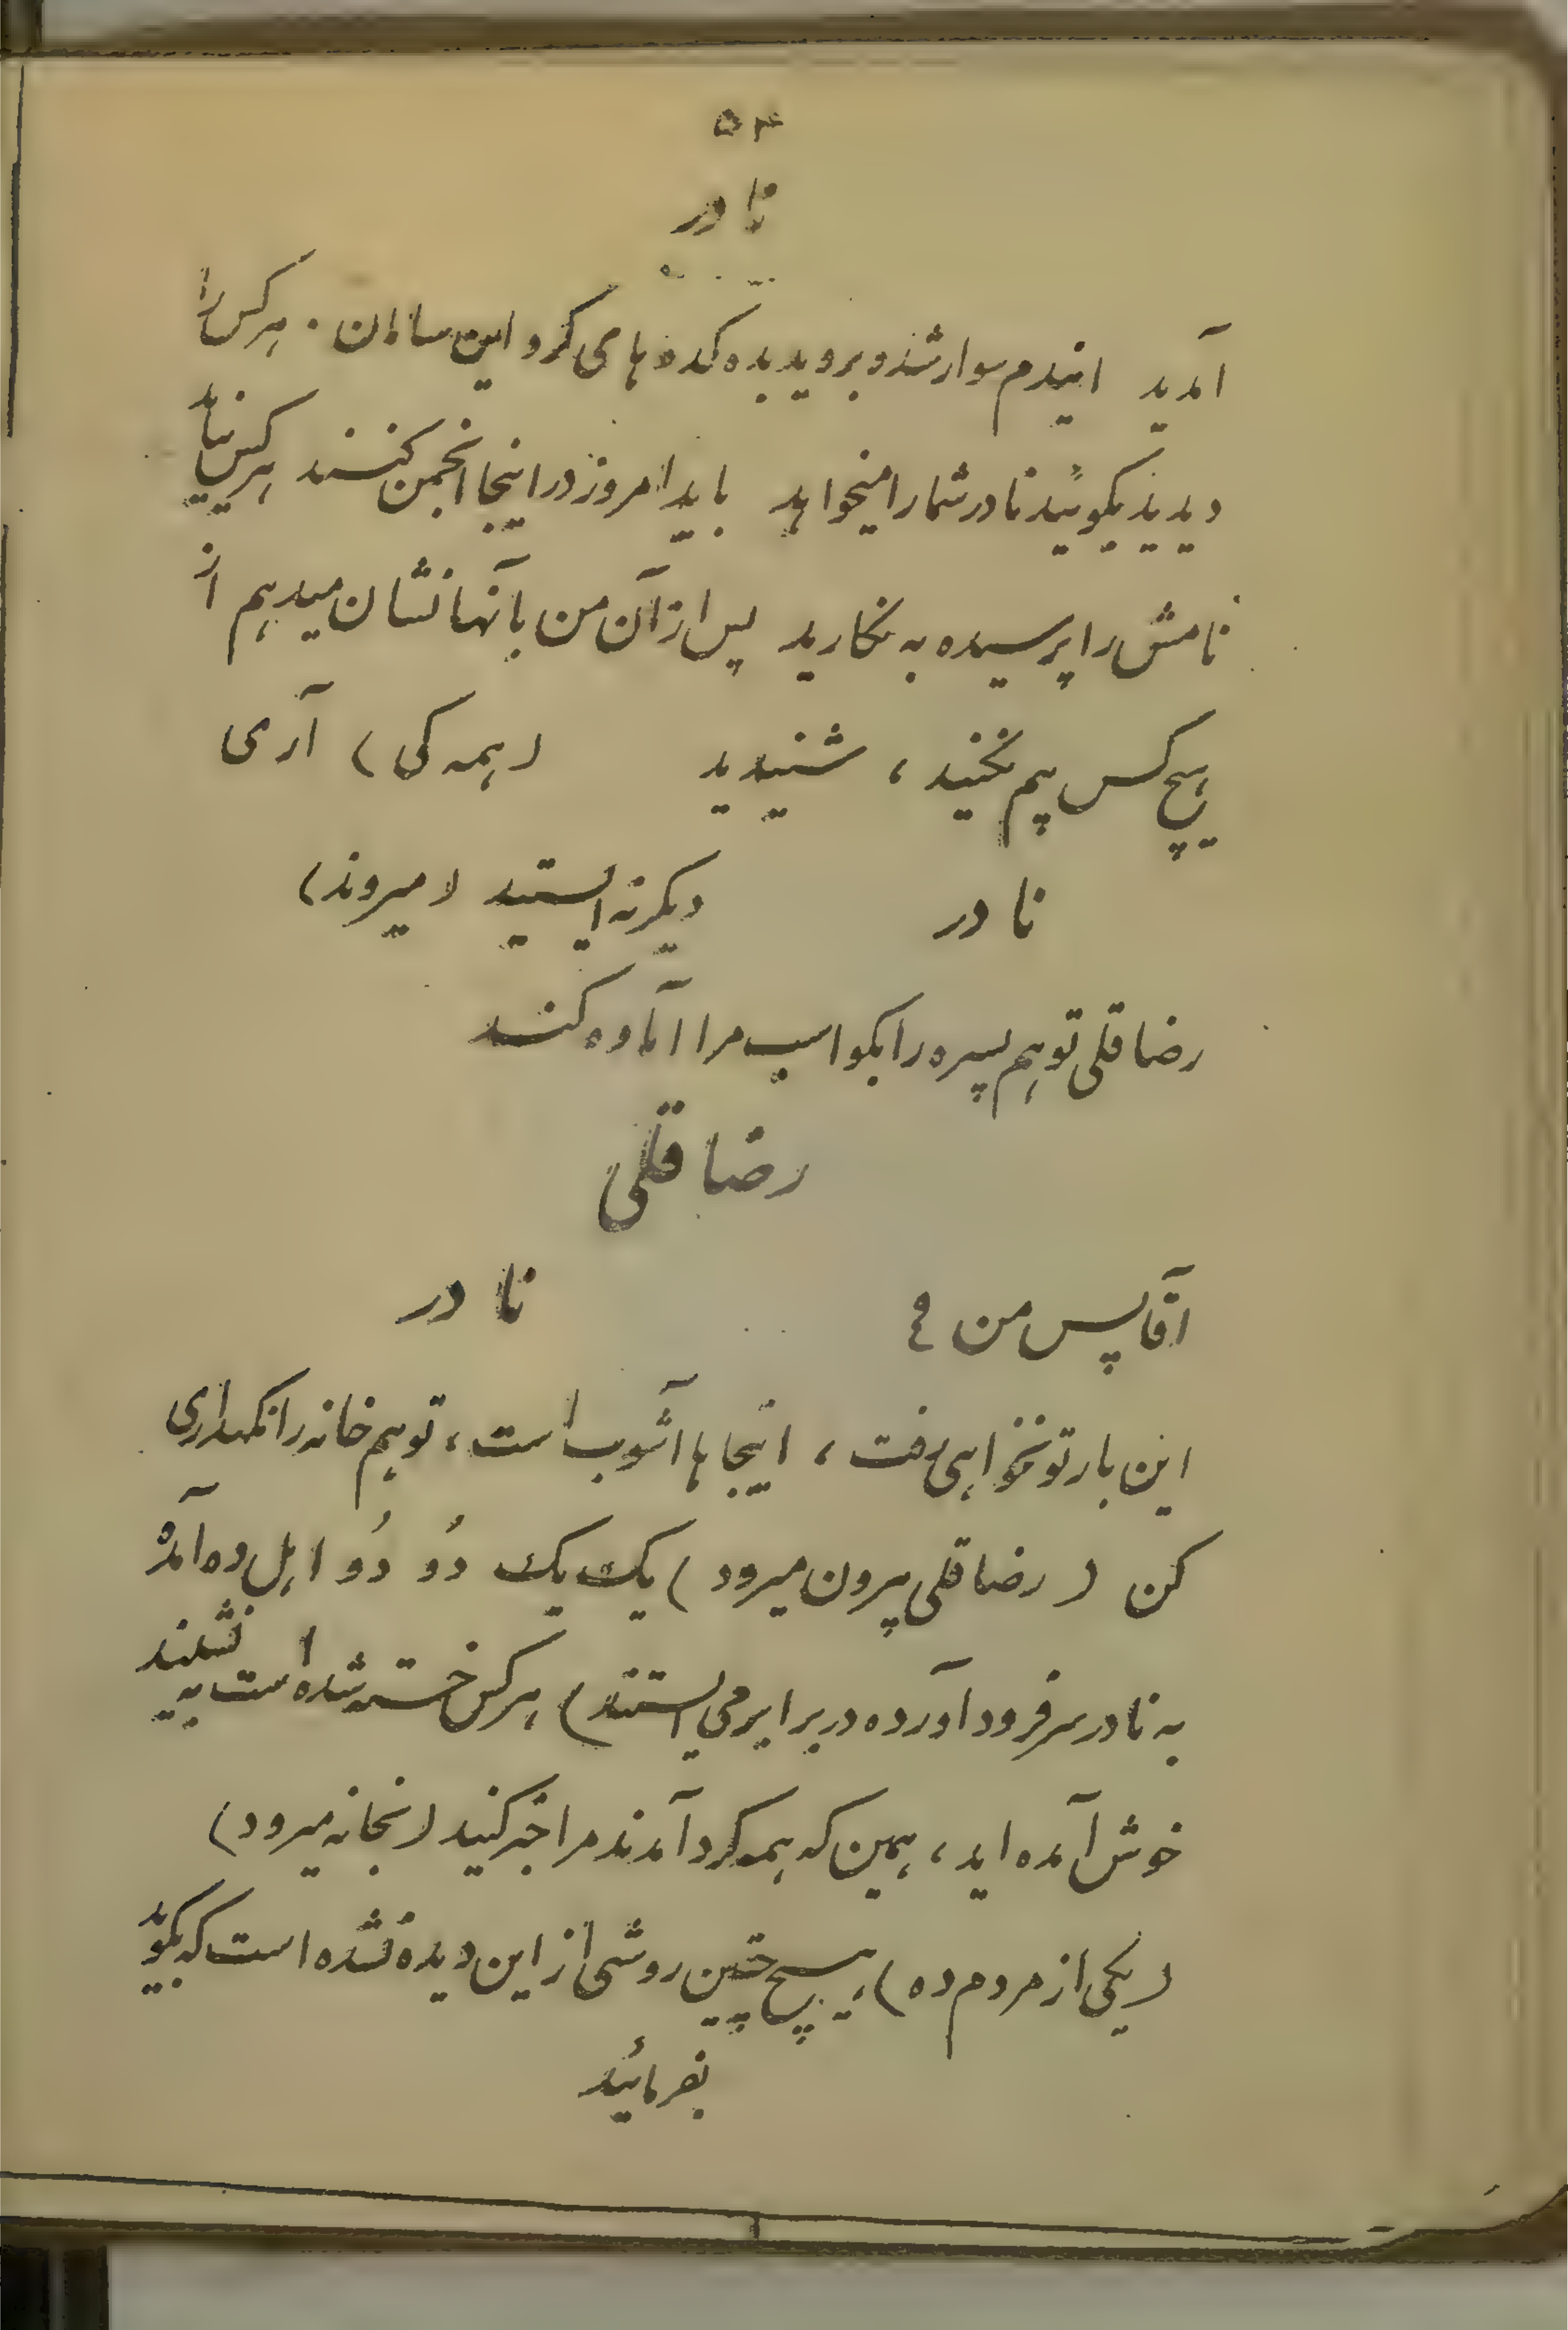 ۵۴
نادر
آمدید ایندم سوار شده بروید بده کده های گرد این سامان . هرکس را
دیدید بگوئید نادر شما را میخواهد باید امروز در اینجا انجمن کنند هرکس نیاید
نامش را پرسیده به نگارید پس از آن من بآنها نشان میدهم از
هیچ کس بیم نکنید ، شنیدید (همه کی) آری
نادر دیگر نه ایستید (میروند)
رضا قلی تو هم پسره را بگو اسب مرا آماده کند
رضا قلی
آقا پس من ؟ نادر
این بار تو نخواهی رفت ، اینجا ها آشوب است ، تو هم خانه را نگهداری
کن (رضا قلی بیرون میرود) یک یک دُو دُو اهل ده آمده
به نادر سر فرود آورده در برابر می ایستند) هرکس خسته شده است به نشیند
خوش آمده اید ، همین که همه گرد آمدند مرا خبر کنید (بخانه میرود)
(یکی از مردم ده) هیچ چنین روشی از این دیده نشده است که بگوید
بفرمائید